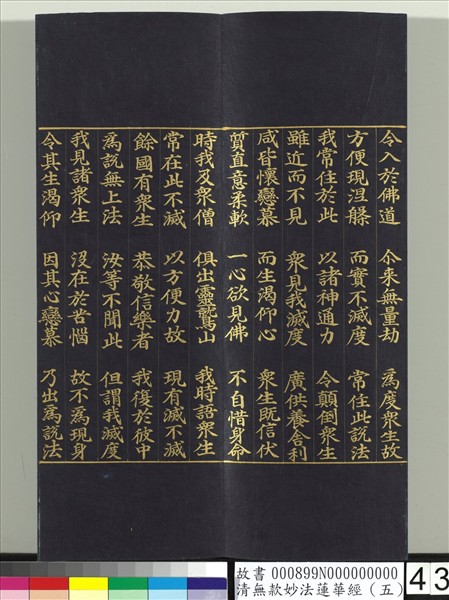 令入於佛道 尒来無量劫 爲度衆生故
方便現涅槃 而實不滅度 常住此說法
我常住於此 以諸神通力 令顛倒衆生
雖近而不見 衆見我滅度 廣供養舍利
咸皆懷戀慕 而生渴仰心 衆生既信伏
質直意柔軟 一心欲見佛 不自惜身命
時我及衆僧 俱出靈鷲山 我時語衆生
常在此不滅 以方便力故 現有滅不滅
餘國有衆生 恭敬信樂者 我復於彼中
爲說無上法 汝等不聞此 但謂我滅度
我見諸衆生 沒在於苦惱 故不爲現身
令其生渴仰 因其心戀慕 乃出爲說法
故書 000899N000000000
清無款妙法蓮華經（五）
43